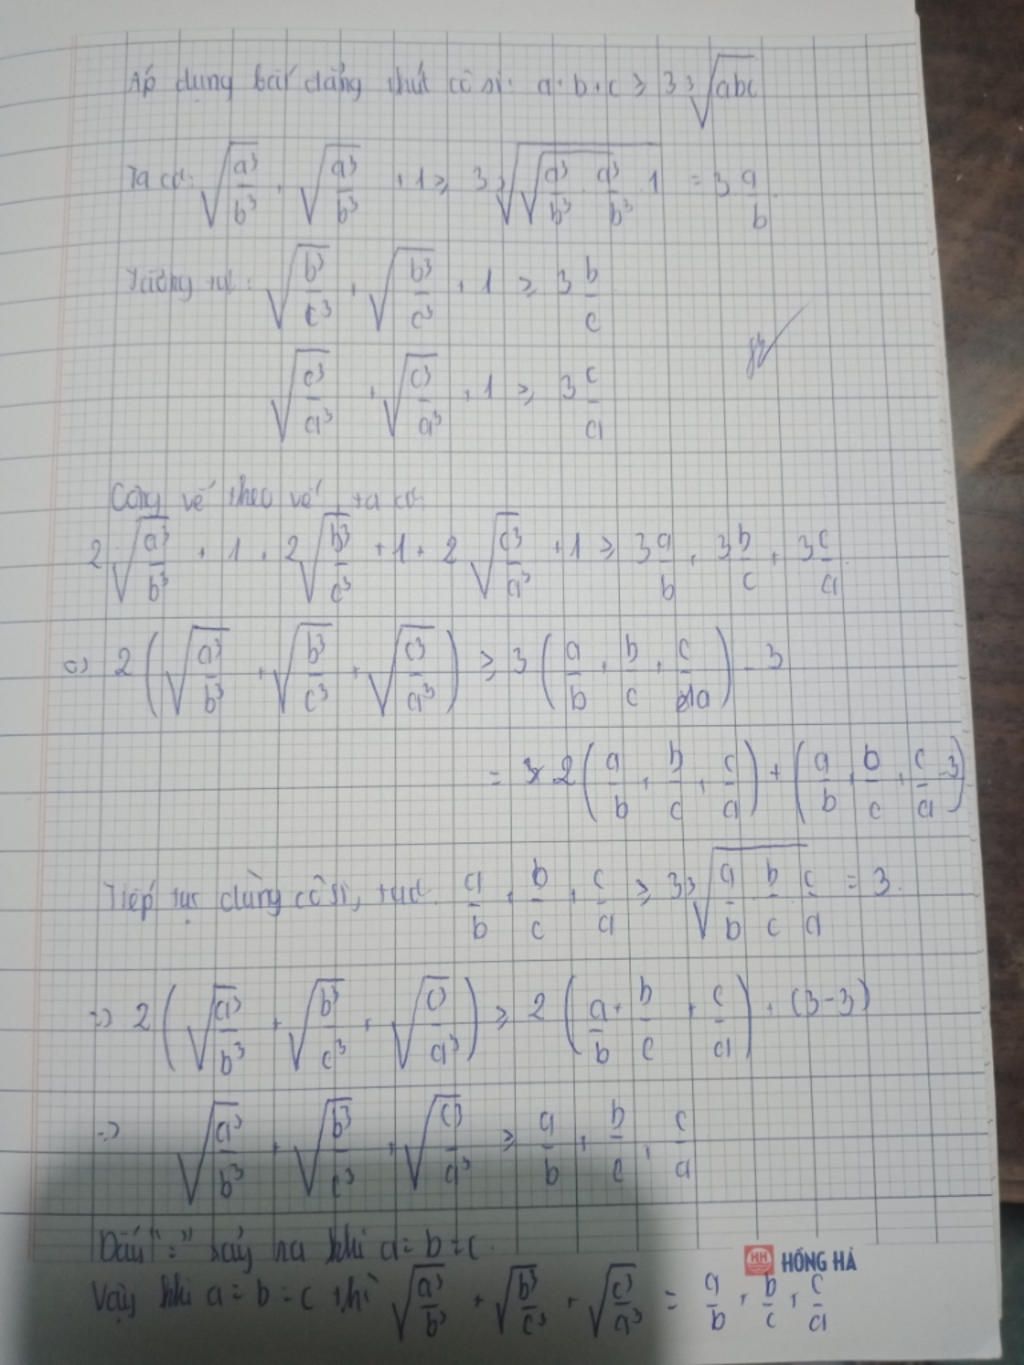 Áp dụng bất đẳng thức cô si: a+b+c ≥ 3∛(abc)
Ta có: √(a³/b³) + √(a³/b³) + 1 ≥ 3∛(√(a³/b³ · a³/b³ · 1)) = 3 a/b
Tương tự: √(b³/c³) + √(b³/c³) + 1 ≥ 3 b/c
√(c³/a³) + √(c³/a³) + 1 ≥ 3 c/a
Cộng vế theo vế ta có:
2√(a³/b³) + 1 + 2√(b³/c³) + 1 + 2√(c³/a³) + 1 ≥ 3 a/b + 3 b/c + 3 c/a
⇔ 2(√(a³/b³) + √(b³/c³) + √(c³/a³)) ≥ 3(a/b + b/c + c/a) - 3
= 2(a/b + b/c + c/a) + (a/b + b/c + c/a - 3)
Tiếp tục dùng cô si, được a/b + b/c + c/a ≥ 3∛(a/b · b/c · c/a) = 3.
=> 2(√(a³/b³) + √(b³/c³) + √(c³/a³)) ≥ 2(a/b + b/c + c/a) + (3-3)
=> √(a³/b³) + √(b³/c³) + √(c³/a³) ≥ a/b + b/c + c/a
Dấu "=" xảy ra khi a=b=c.
HH HỒNG HÀ
Vậy khi a=b=c thì √(a³/b³) + √(b³/c³) + √(c³/a³) = a/b + b/c + c/a